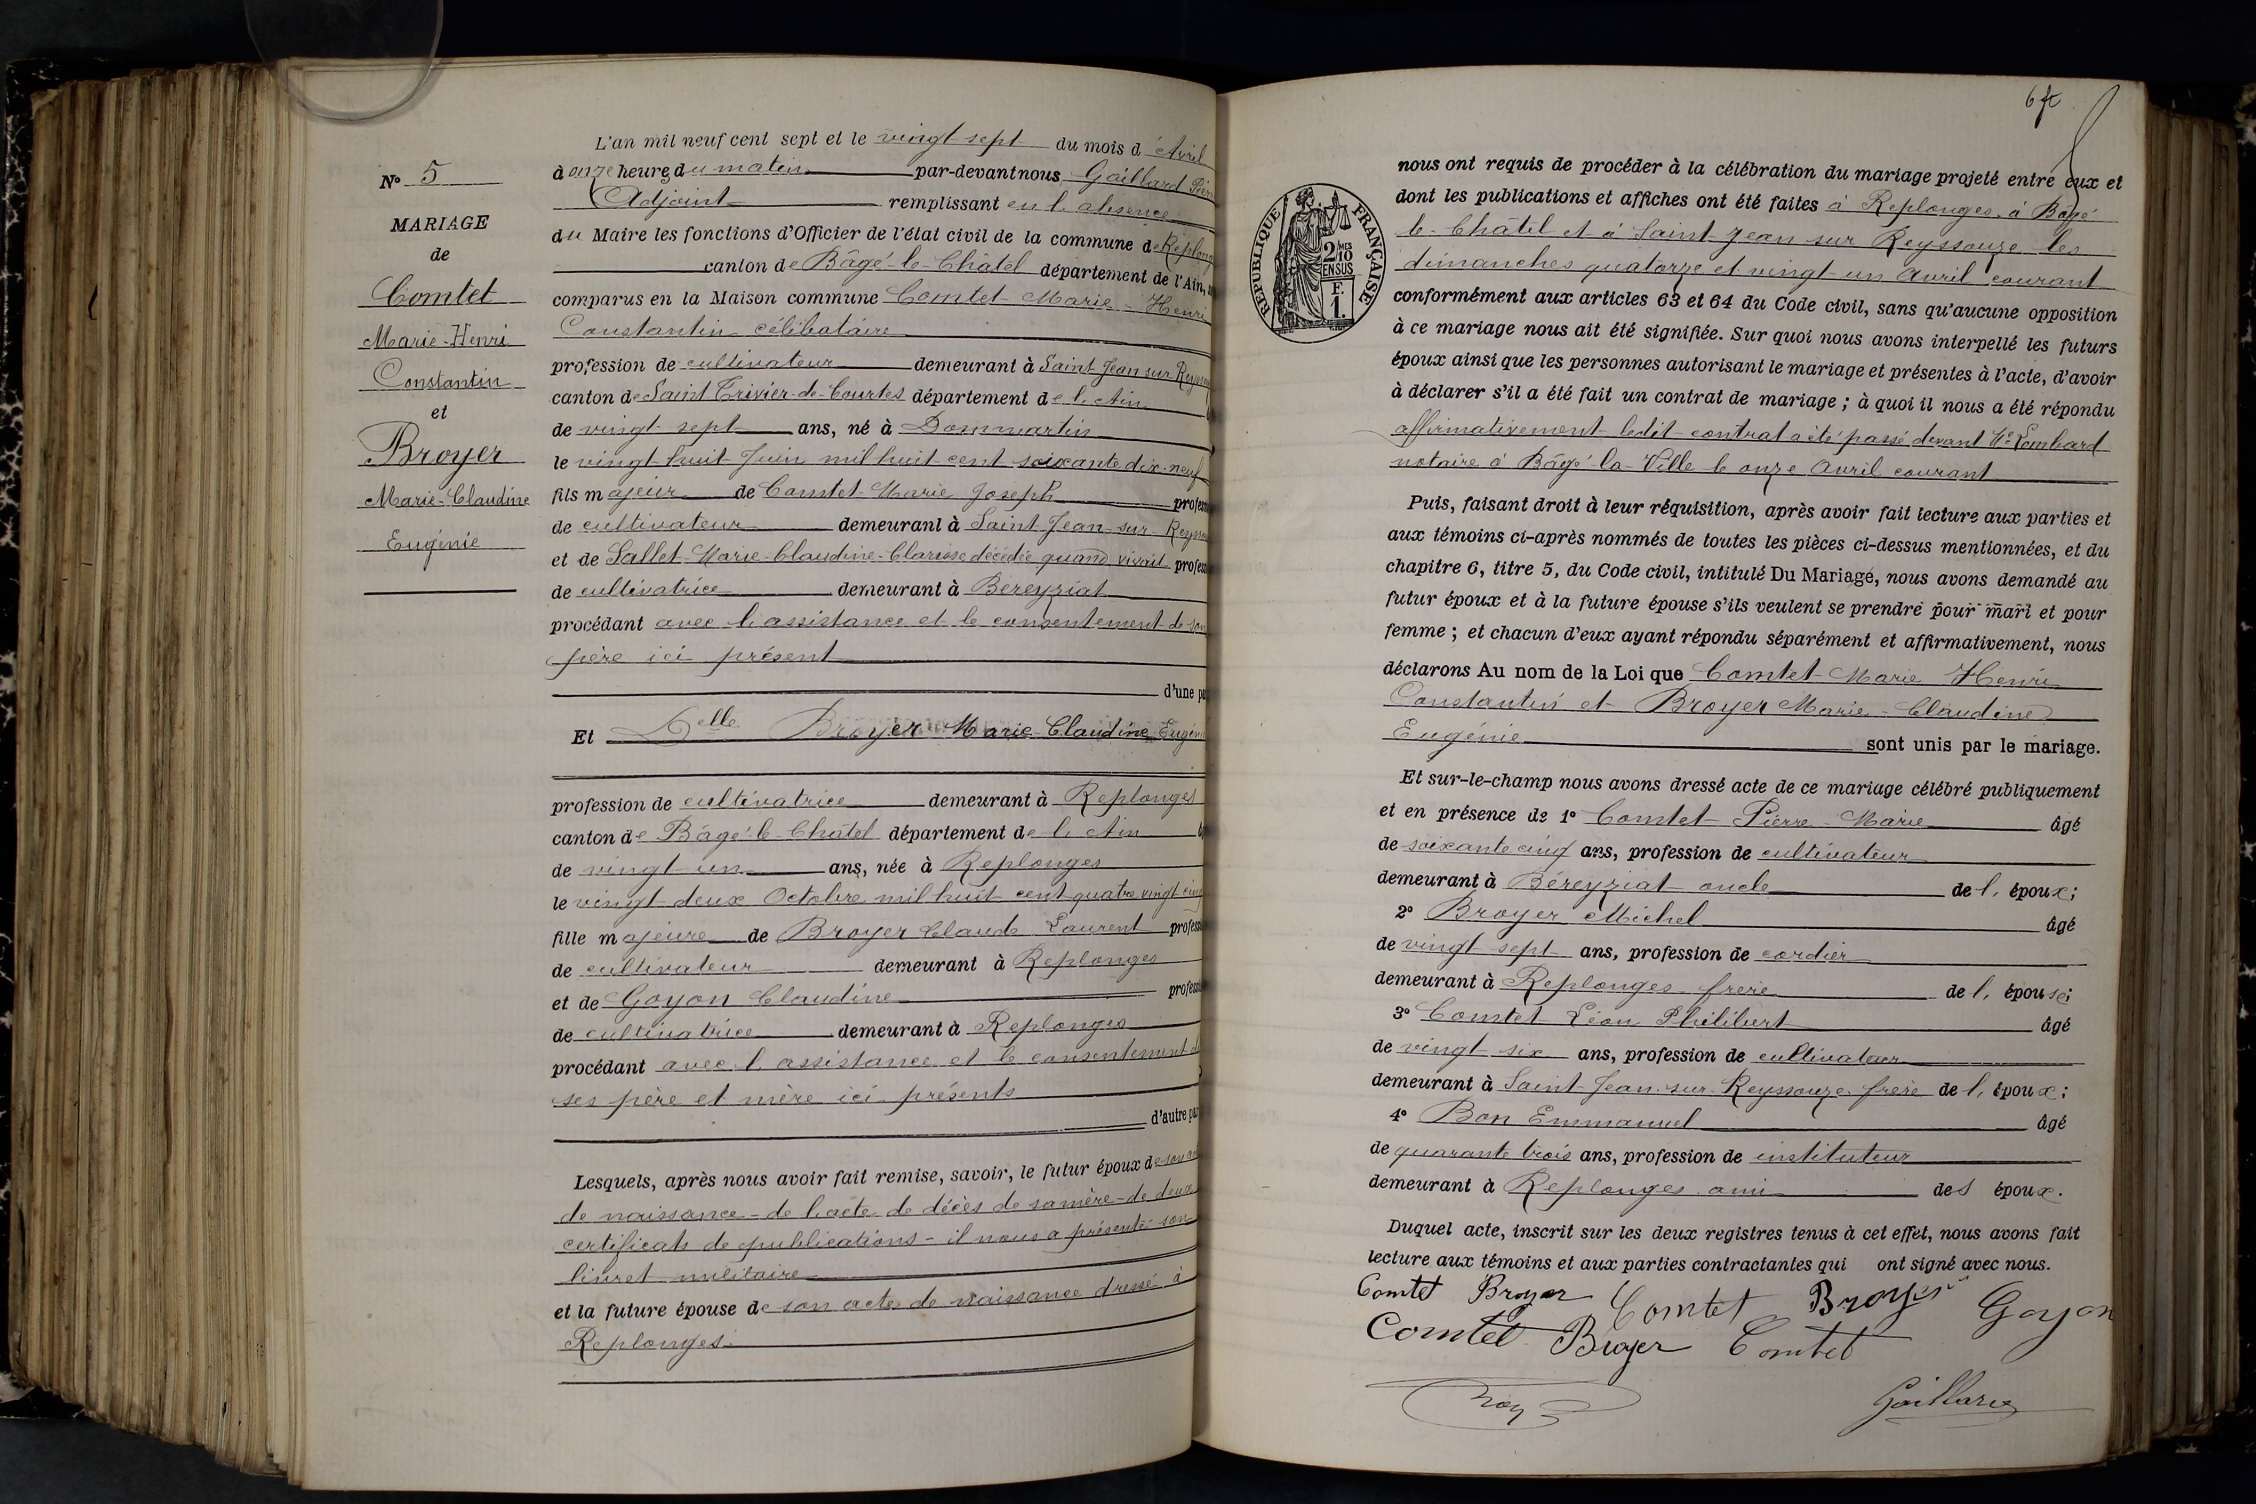 N° 5
MARIAGE
de
Comtet
Marie-Henri
Constantin
et
Broyer
Marie-Claudine
Eugénie
L'an mil neuf cent sept et le vingt sept du mois d'Avril
à onze heures du matin par-devant nous Gaillard
Adjoint remplissant en l'absence
du Maire les fonctions d'Officier de l'état civil de la commune de
canton de Bâgé-le-Châtel département de l'Ain,
comparus en la Maison commune Comtet Marie-Henri
Constantin célibataire
profession de cultivateur demeurant à Saint Jean sur
canton de Saint Trivier-de-Courtes département de l'Ain
de vingt sept ans, né à Dommartin
le vingt-huit Juin mil huit cent soixante dix-neuf
fils majeur de Comtet Marie Joseph
de cultivateur demeurant à Saint-Jean-sur-
et de Sallet Marie-Claudine-Clarisse décédée quand vivait
de cultivatrice demeurant à Béreyziat
procédant avec l'assistance et le consentement de son
père ici présent
d'une
Et Delle Broyer Marie-Claudine Eugénie
profession de cultivatrice demeurant à Replonges
canton de Bâgé-le-Châtel département de l'Ain
de vingt-un ans, née à Replonges
le vingt-deux Octobre mil huit cent quatre vingt cinq
fille majeure de Broyer Claude Laurent
de cultivateur demeurant à Replonges
et de Goyon Claudine
de cultivatrice demeurant à Replonges
procédant avec l'assistance et le consentement de
ses père et mère ici présents
d'autre
Lesquels, après nous avoir fait remise, savoir, le futur époux de son
de naissance - de l'acte de décès de sa mère - de deux
certificats de publications - il nous a présenté son
livret militaire
et la future épouse de son acte de naissance dressé à
Replonges
REPUBLIQUE FRANÇAISE
2/10
EN SUS
F.
1.
nous ont requis de procéder à la célébration du mariage projeté entre eux et
dont les publications et affiches ont été faites à Replonges, à Bâgé
le-Châtel et à Saint Jean sur Reyssouze les
dimanches quatorze et vingt-un Avril courant
conformément aux articles 63 et 64 du Code civil, sans qu'aucune opposition
à ce mariage nous ait été signifiée. Sur quoi nous avons interpellé les futurs
époux ainsi que les personnes autorisant le mariage et présentes à l'acte, d'avoir
à déclarer s'il a été fait un contrat de mariage ; à quoi il nous a été répondu
affirmativement ledit contrat a été passé devant Me Lombard
notaire à Bâgé-la-Ville le onze Avril courant
Puis, faisant droit à leur réquisition, après avoir fait lecture aux parties et
aux témoins ci-après nommés de toutes les pièces ci-dessus mentionnées, et du
chapitre 6, titre 5, du Code civil, intitulé Du Mariage, nous avons demandé au
futur époux et à la future épouse s'ils veulent se prendre pour mari et pour
femme ; et chacun d'eux ayant répondu séparément et affirmativement, nous
déclarons Au nom de la Loi que Comtet Marie Henri
Constantin et Broyer Marie-Claudine
Eugénie sont unis par le mariage.
Et sur-le-champ nous avons dressé acte de ce mariage célébré publiquement
et en présence de 1° Comtet Pierre-Marie âgé
de soixante cinq ans, profession de cultivateur
demeurant à Béreyziat oncle de l'époux ;
2° Broyer Michel âgé
de vingt sept ans, profession de cordier
demeurant à Replonges frère de l'épouse ;
3° Comtet Léon Philibert âgé
de vingt six ans, profession de cultivateur
demeurant à Saint-Jean-sur-Reyssouze frère de l'époux ;
4° Bon Emmanuel âgé
de quarante trois ans, profession de instituteur
demeurant à Replonges ami des époux.
Duquel acte, inscrit sur les deux registres tenus à cet effet, nous avons fait
lecture aux témoins et aux parties contractantes qui ont signé avec nous.
Comtet Broyer Comtet Broyer Goyon
Comtet Broyer Comtet
Gaillard